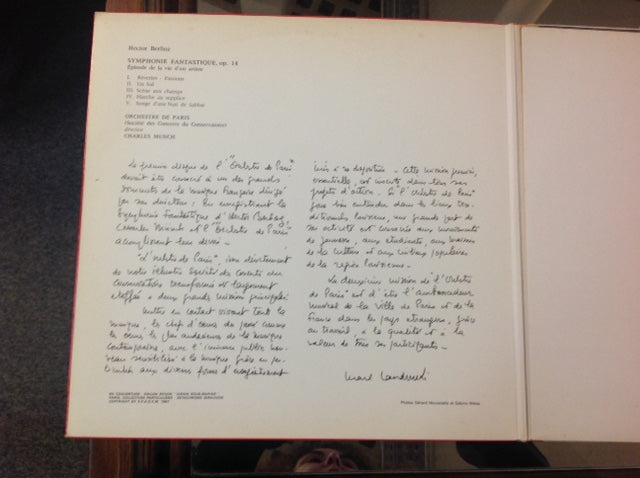 Hector Berlioz
SYMPHONIE FANTASTIQUE, op. 14
Épisode de la vie d'un artiste
I. Rêveries - Passions
II. Un Bal
III. Scène aux champs
IV. Marche au supplice
V. Songe d'une Nuit de Sabbat
ORCHESTRE DE PARIS
(Société des Concerts du Conservatoire)
direction
CHARLES MUNCH
Le premier disque de l'"Orchestre de Paris"
devait être consacré à un des grands
monuments de la musique française dirigé
par son directeur : En enregistrant la
Symphonie Fantastique d'Hector Berlioz,
Charles Munch et l'"Orchestre de Paris"
accomplissent leur devoir -
"Orchestre de Paris",
de notre illustre Société des Concerts du
Conservatoire transformé et largement
étoffé a deux grandes missions principales
Mettre en contact vivant tout la
musique, les chefs d'œuvre du passé comme
les œuvres les plus audacieuses de la musique
contemporaine, avec l'immense public
sensibilisé à la musique grâce en
aux diverses formes d'enregistrement
mis à sa disposition - Cette mission première,
essentielle, est inscrite dans tous ses
projets d'action - Si l'Orchestre de Paris
se fera entendre dans les lieux
traditionnels Parisiens, une grande part de
son activité est consacrée aux mouvements
de jeunesse, aux étudiants, aux maisons
de la culture et aux milieux populaires
de la région Parisienne -
La deuxième mission de l'"Orchestre
de Paris" est d'être l'ambassadeur
musical de la ville de Paris et de la
France dans les pays étrangers, grâce
au travail, à la qualité et à la
valeur de tous ses participants -
Marcel Landowski
EN COUVERTURE : ODILON REDON :
PARIS, COLLECTION PARTICULIÈRE
COPYRIGHT BY S.P.A.D.E.M. 1967
Photos Gérard Neuvecelle et Sabine Weiss